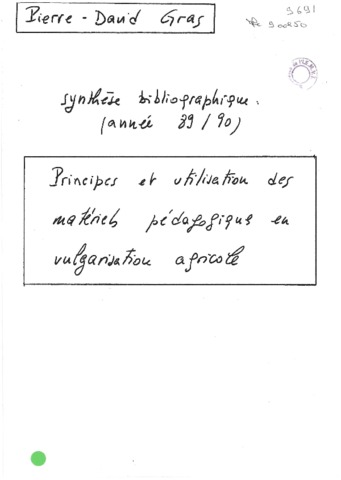 Pierre - David Gras
9691
synthèse bibliographique.
(année 89 / 90)
Principes et utilisation des
matériels pédagogique en
vulgarisation agricole